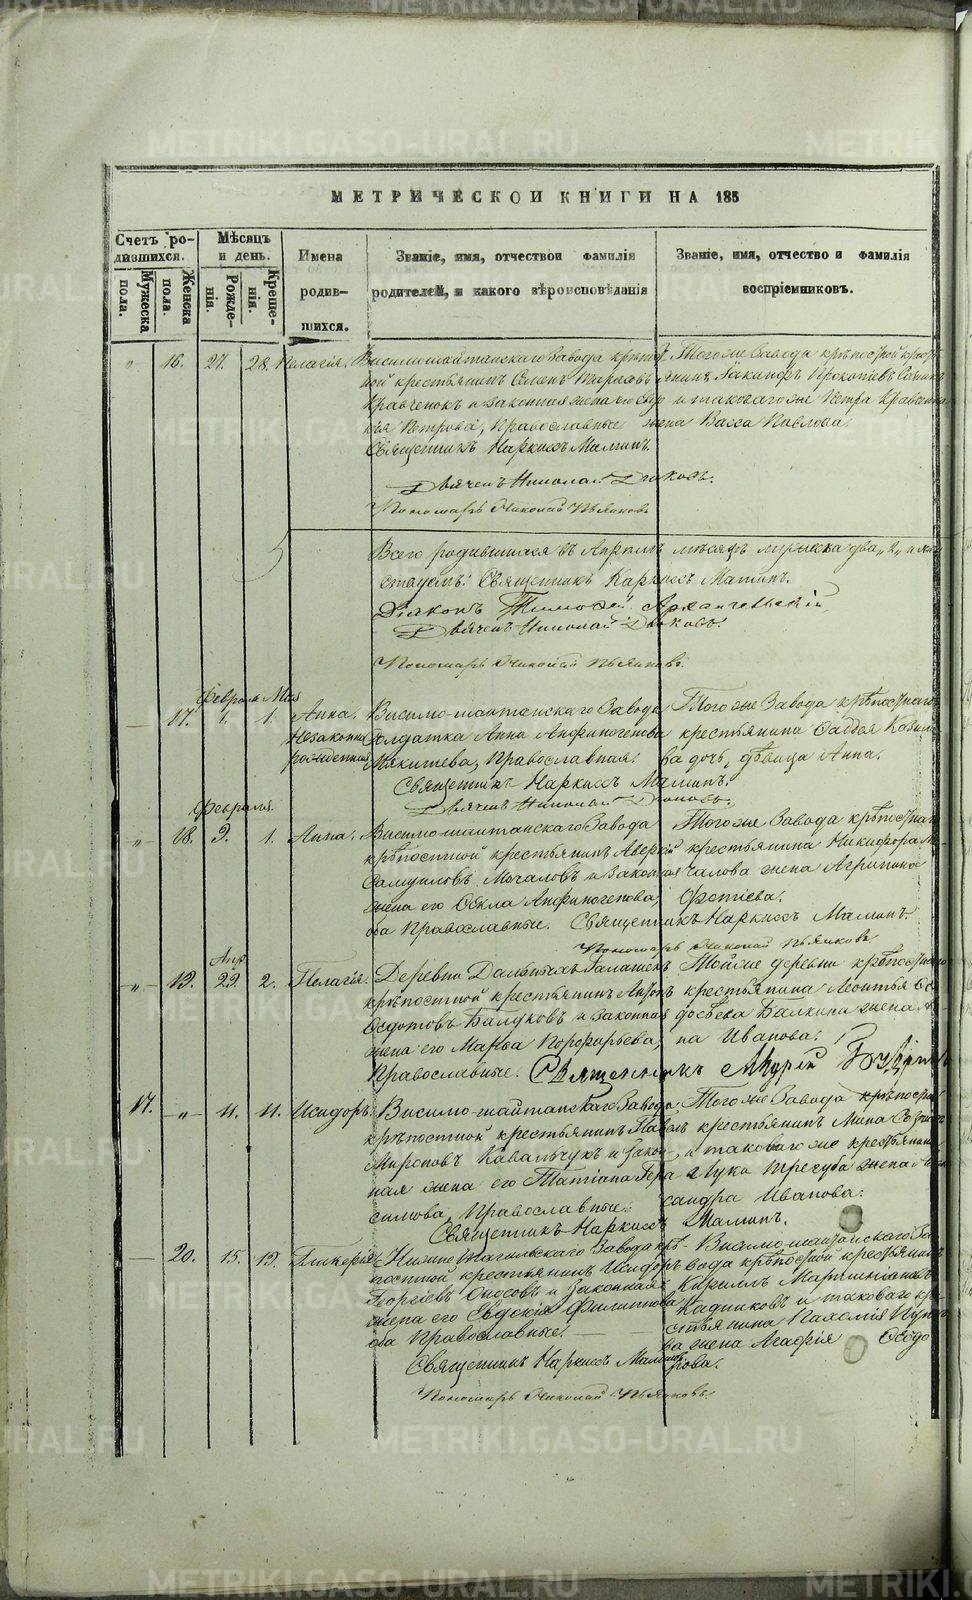 METRIKI.GASO-URAL.RU
МЕТРИЧЕСКОЙ КНИГИ НА 185
Счетъ родившихся.
Мужеска пола.
Женска пола.
Мѣсяцъ и день.
Рожденія.
Крещенія.
Имена родившихся.
Званіе, имя, отчество и фамилія родителей, и какого вѣроисповѣданія
Званіе, имя, отчество и фамилія воспріемниковъ.
" 16. 27. 28. Пелагія.
Висимошайтанскаго Завода крѣпост-
ной крестьянинъ Семенъ
Кравченокъ и законная жена его
Петрова, Православные
Священникъ Наркисъ Маминъ.
Дьячекъ Николай Дюковъ.
Пономарь Николай
Тогоже Завода крѣпостной кресть-
янинъ Іакинфъ Прокопіевъ
и таковагоже Петра
жена Васса Павлова.
Всего родившихся въ Апрелѣ мѣсяцѣ мужеска два, 2, и жен
Священникъ Наркисъ Маминъ.
Діаконъ Тимофей Архангельскій
Дьячекъ Николай Дюковъ.
Пономарь Николай
Февраль Мая
— 17. 1. 1. Анна.
Незаконно
рожденная
Висимо-шайтанскаго Завода
Солдатка Анна Анфиногенова
Макишева, Православная.
Священникъ Наркисъ Маминъ.
Дьячекъ Николай Дюковъ.
Тогоже Завода крѣпостнаго
крестьянина Саввы
ва дочь, дѣвица Анна.
Февраля
" 18. 9. 1. Анна.
Висимо-шайтанскаго Завода
крѣпостной крестьянинъ Аверкій
Самуиловъ Мочаловъ и законная
жена его Ѳекла Анфиногенова,
оба Православные. Священникъ Наркисъ Маминъ.
Пономарь Николай
Тогоже Завода крѣпостнаго
крестьянина Никифора Мо
чалова жена Агрипина
Фотіева.
Апр.
" 19. 29. 2. Пелагія.
Деревни Галашекъ
крѣпостной крестьянинъ
Ѳедотовъ Балуковъ и законная
жена его Марѳа Порфирьева,
Православные. Священникъ Андрей
Тойже деревни крѣпостнаго
крестьянина Леонтья Ѳе
досѣева Балкина жена
на Иванова.
17. " 11. 11. Исидоръ.
Висимо-шайтанскаго Завода
крѣпостной крестьянинъ Павелъ
Мироновъ Кавальчукъ и закон-
ная жена его Татіана Гера
симова, Православные.
Священникъ Наркисъ Маминъ.
Тогоже Завода крѣпостной
крестьянинъ Мина
и таковагоже крестьянина
Луки Трегуба жена Алек
сандра Иванова.
— 20. 15. 19. Гликерія
Нижне Тагильскаго Завода крѣ-
постной крестьянинъ Исидоръ
Георгіевъ и законная
жена его Евдокія Филиппова,
оба Православные.
Священникъ Наркисъ Маминъ
Пономарь Николай
Висимо-шайтанскаго За
вода крѣпостной крестьянинъ
Кириллъ Мартиніановъ
Кадниковъ и таковаго кре
стьянина Пахомія
ва жена Агафія Ѳеодо
рова.